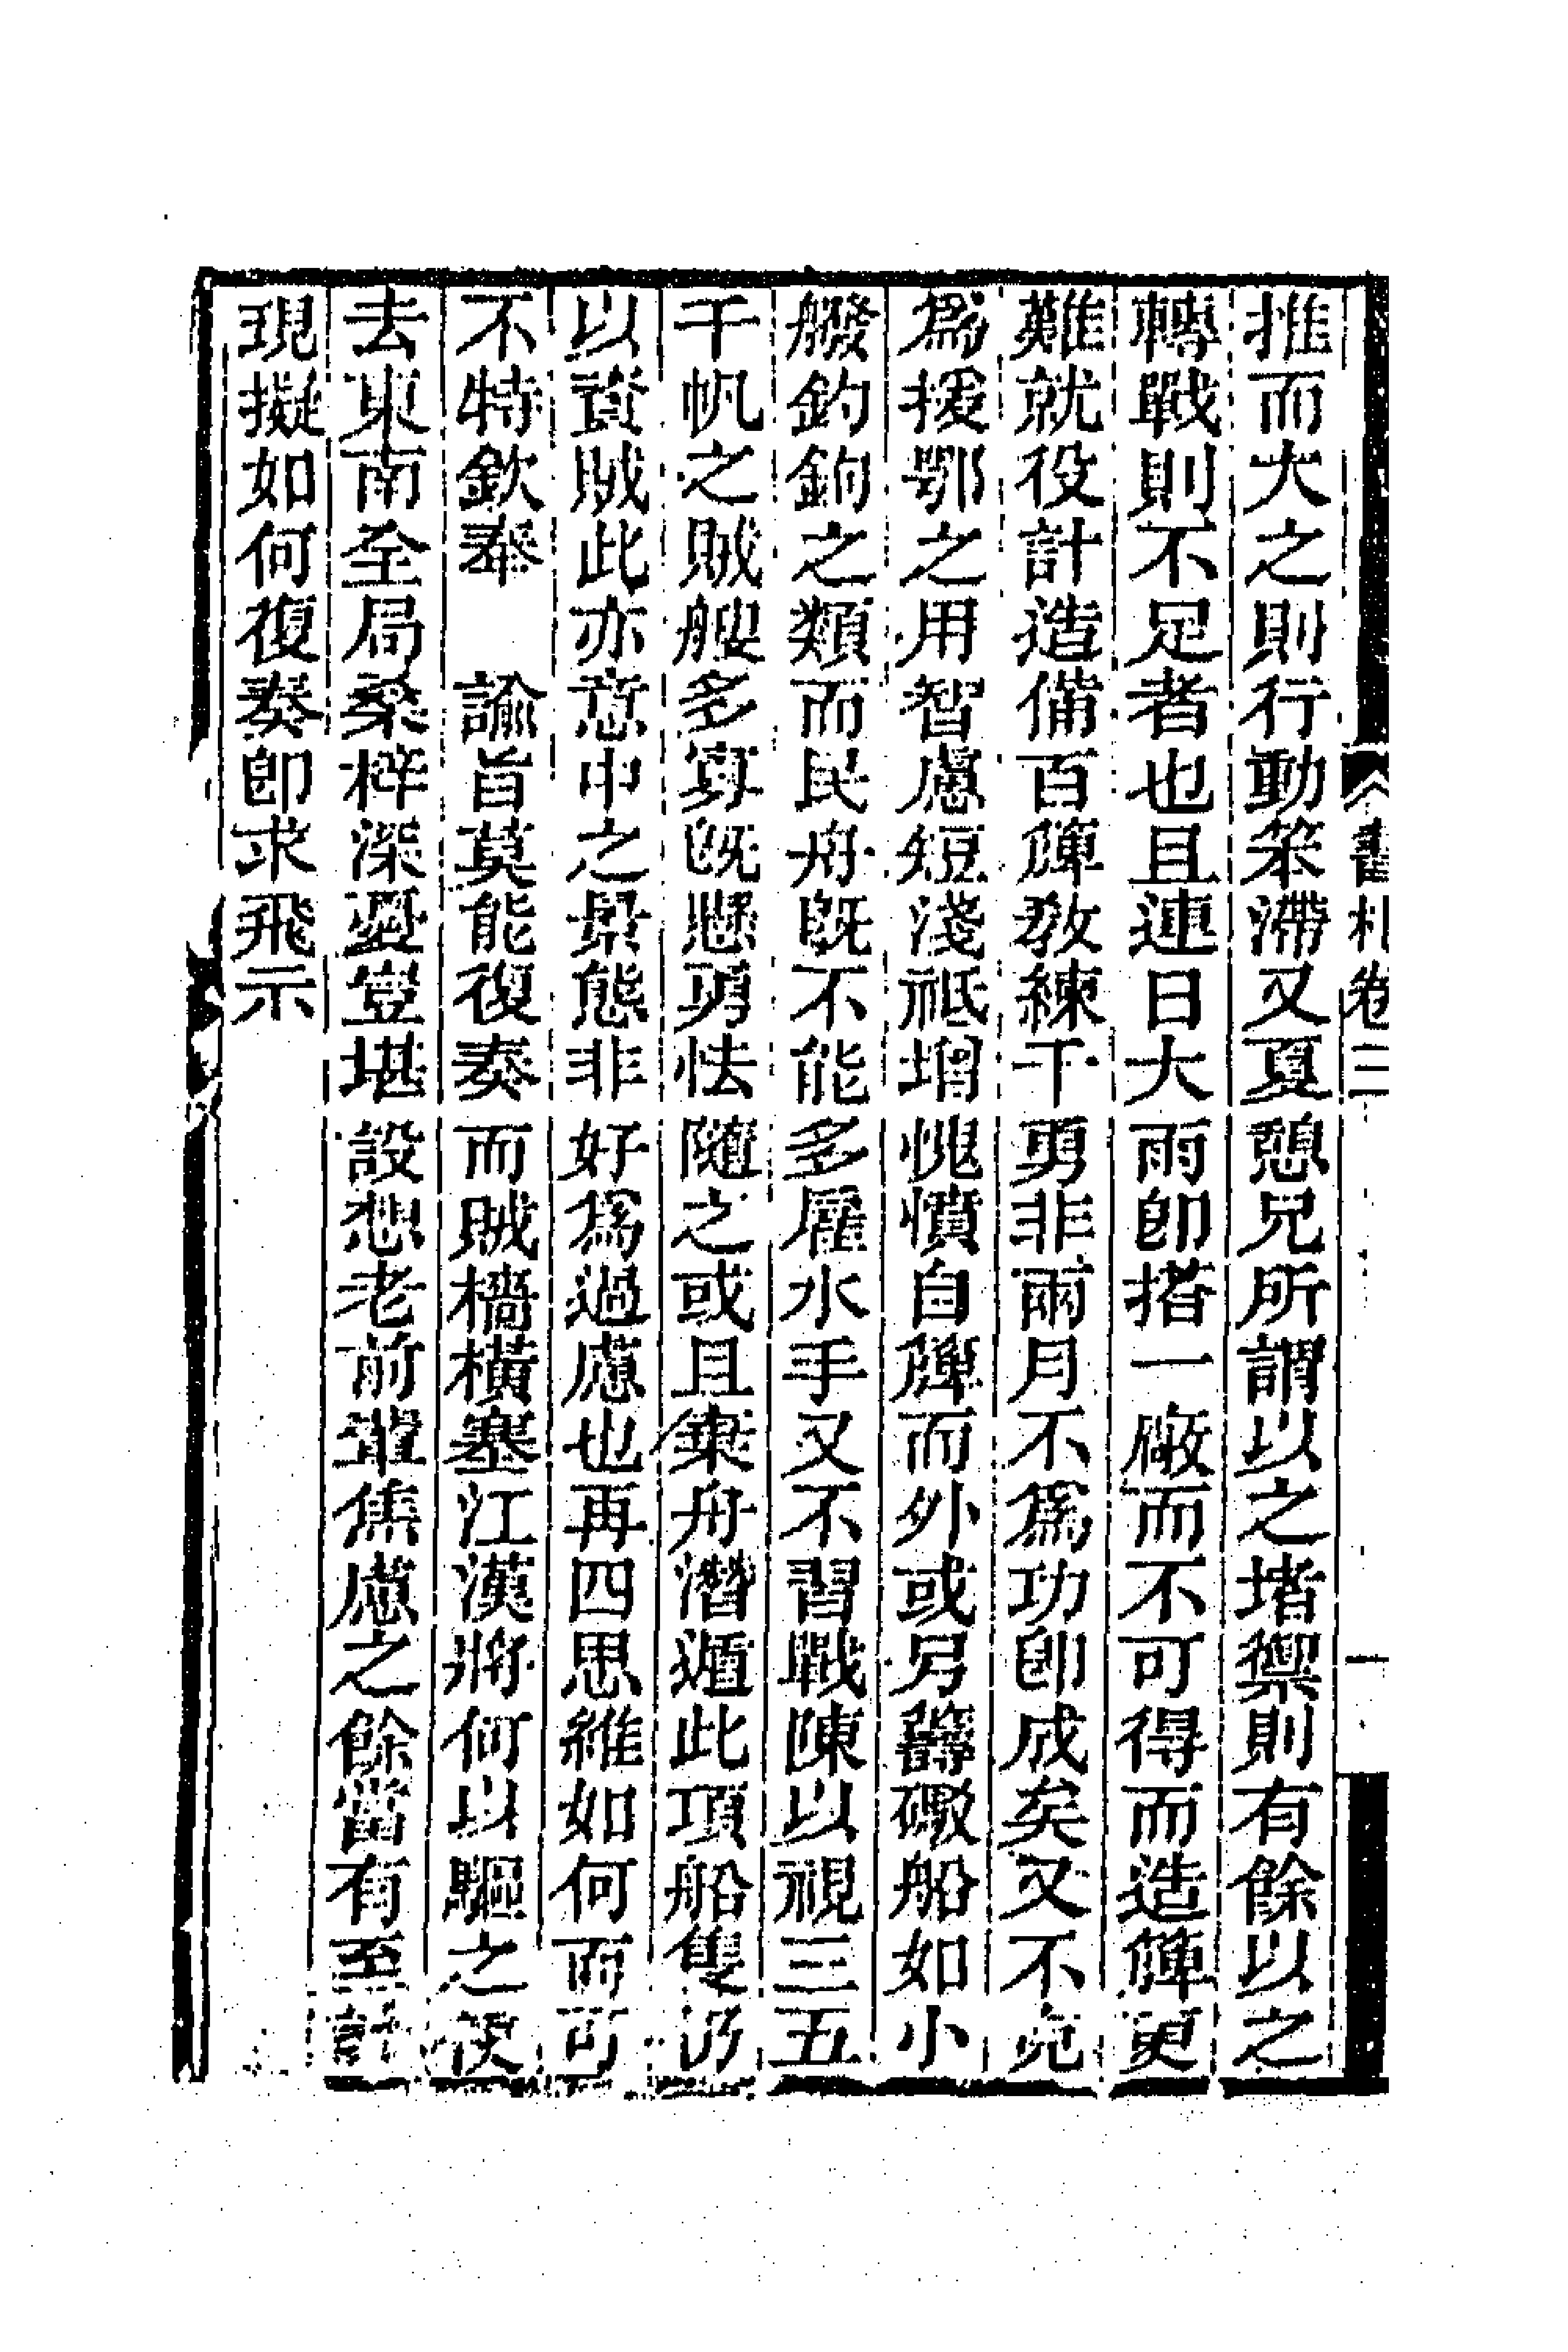 書札卷二
一
推而大之則行動笨滯又夏憩兄所謂以之堵禦則有餘以之
轉戰則不足者也且連日大雨卽搭一廠而不可得而造簰更
難就役計造備百簰教練千勇非兩月不爲功卽成矣又不克
爲援鄂之用智慮短淺祗增愧憤自簰而外或另籌礮船如小
䑺釣鉤之類而民舟旣不能多雇水手又不習戰陳以視三五
千帆之賊艘多寡旣懸勇怯隨之或且棄舟潛遁此項船隻仍
以資賊此亦意中之景態非好爲過慮也再四思維如何而可
不特欽奉　諭旨莫能復奏而賊檣橫塞江漢將何以驅之使
去東南全局桑梓深憂豈堪設想老前輩焦慮之餘當有至計
現擬如何復奏卽求飛示